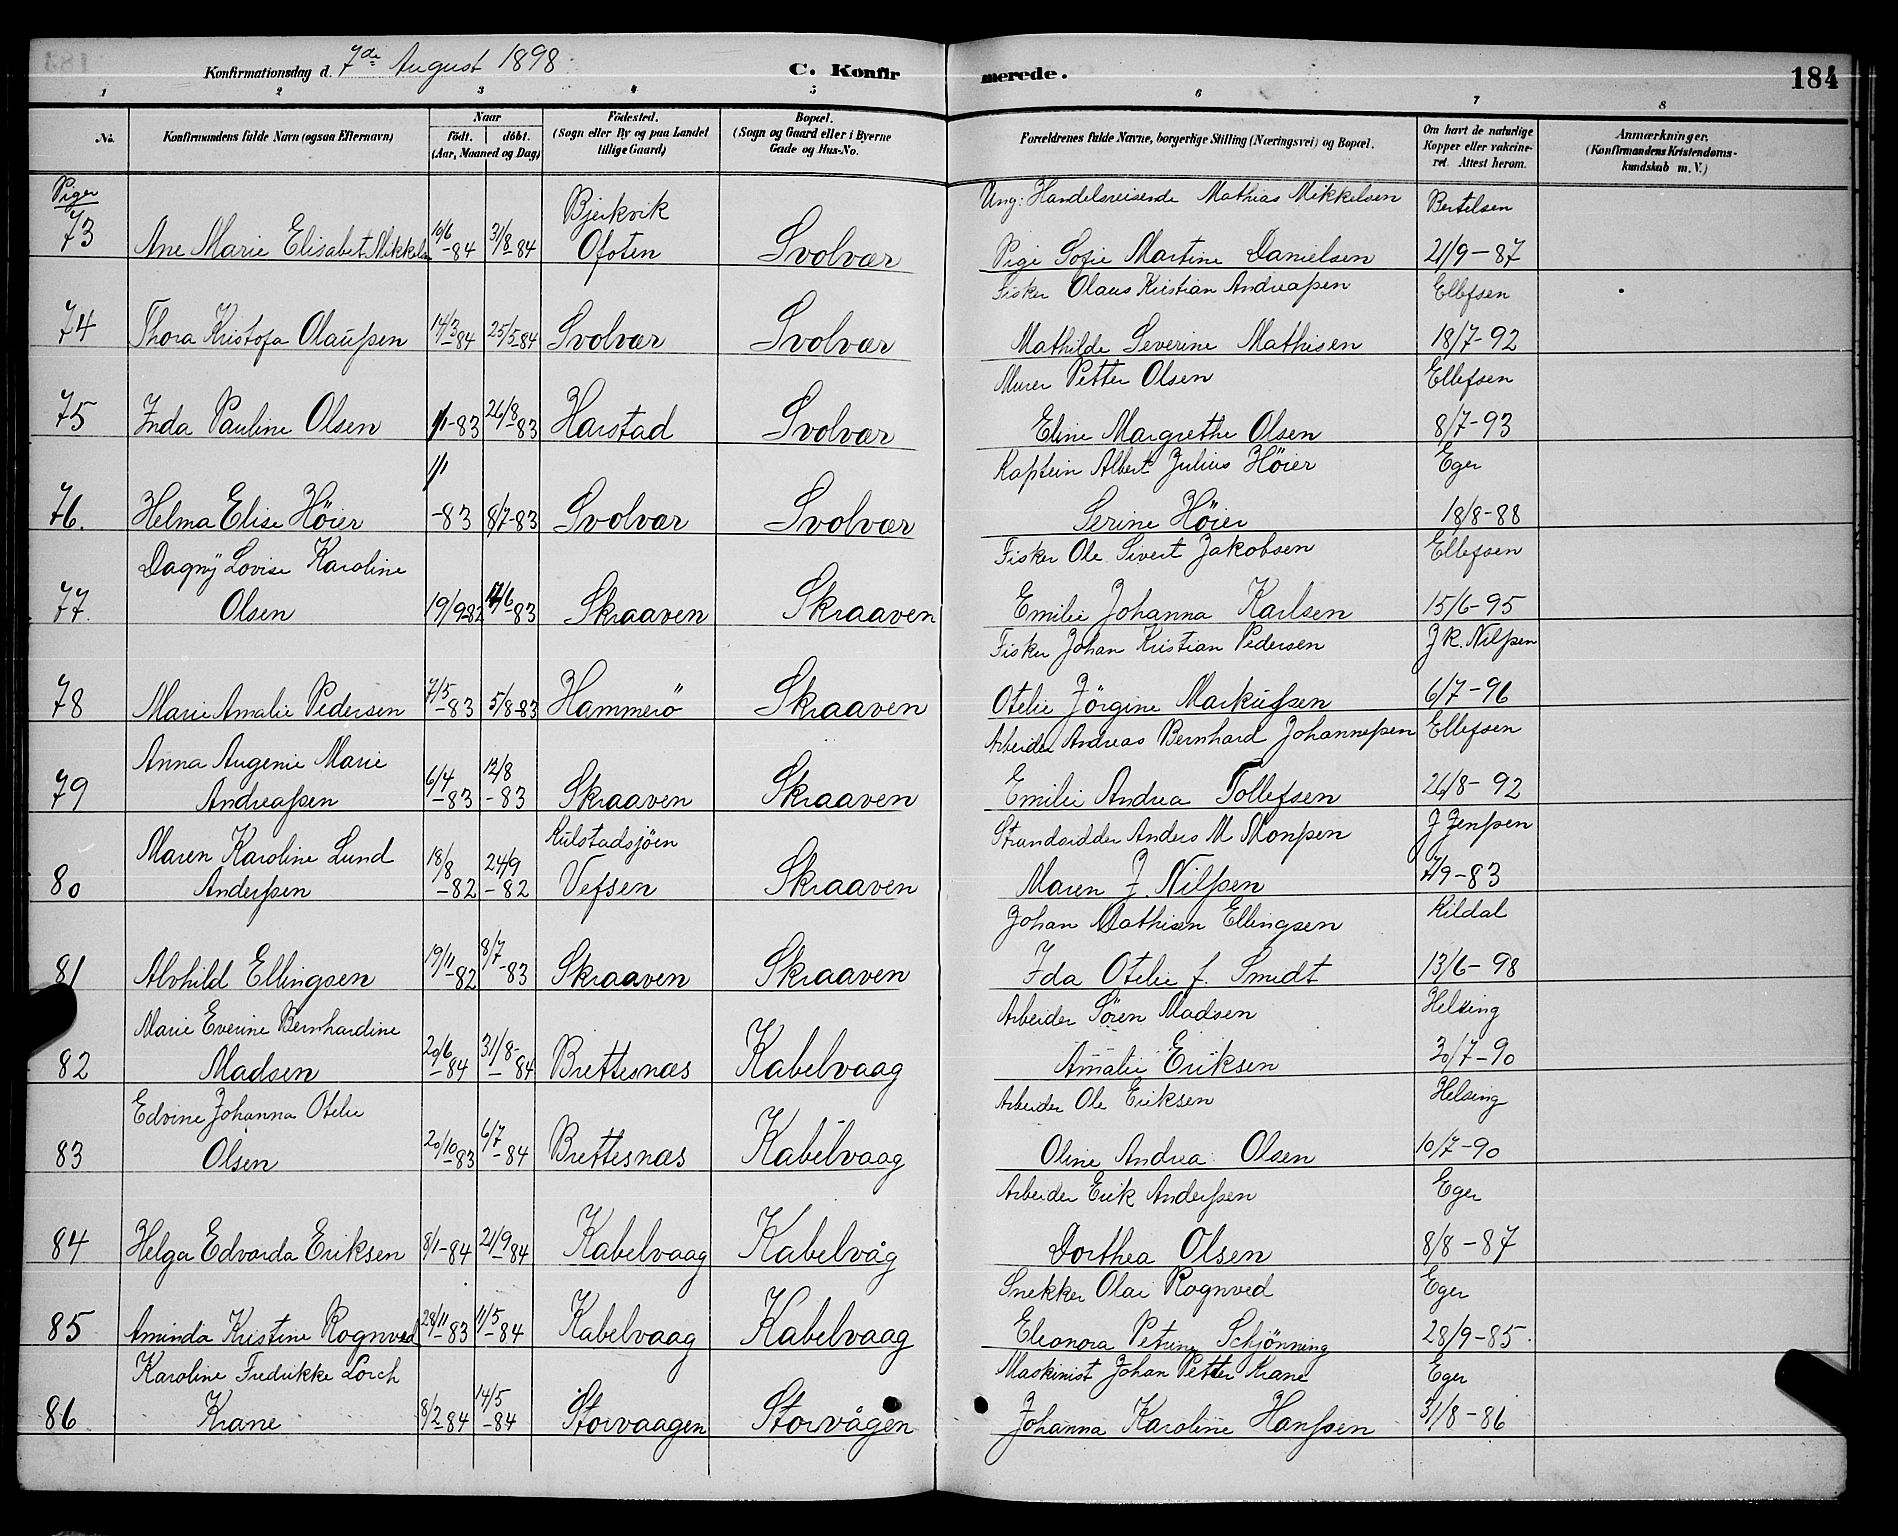 Konfirmationsdag d. 7de August 1898
C. Konfirmerede.
184
1 2 3 4 5 6 7 8
No. | Konfirmandens fulde Navn (ogsaa Efternavn) | Naar født. | døbt. (Aar, Maaned og Dag) | Fødested. (Sogn eller By og paa Landet tillige Gaard) | Bopæl. (Sogn og Gaard eller i Byerne Gade og Hus-No. | Forældrenes fulde Navne, borgerlige Stilling (Næringsvei) og Bopæl. | Om havt de naturlige Kopper eller vakcineret. Attest herom. | Anmærkninger. (Konfirmandens Kristendomskundskab m. V.)
Piger
Bjerkvik | Ung: Handelsreisende Mathias Mikkelsen | Bertelsen
73 | Ane Marie Elisabet Mikkels | 10/6-84 | 31/8-84 | Ofoten | Svolvær | Pige Sofie Martine Danielsen | 21/9-87
Fisker Olaus Kristian Andreaßen | Ellefsen
74 | Thora Kristofa Olaußen | 14/3 84 | 25/5-84 | Svolvær | Svolvær | Mathilde Severine Mathisen | 18/7-92
Murer Petter Olsen | Ellefsen
75 | Inda Pauline Olsen | 1/1-83 | 26/8-83 | Harstad | Svolvær | Eline Margrethe Olsen | 8/7-93
Kaptein Albert Julius Höier | Eger
76. | Helma Elise Höier | 1/1-83 | 8/7-83 | Svolvær | Svolvær | Serine Höier | 18/8-88
Dagny Lovise Karoline | Fisker Ole Sivert Jakobsen | Ellefsen
77. | Olsen | 19/9-82 | 17/6-83 | Skraaven | Skraaven | Emilie Johanna Karlsen | 15/6-95
Fisker Johan Kristian Pedersen | J K. Nilßen
78 | Marie Amalie Pedersen | 7/5-83 | 5/8-83 | Hammerö | Skraaven | Otelie Jörgine Markußen | 6/7-96
Anna Augenie Marie | Arbeider Andreas Bernhard Johanneßen | Ellefsen
79 | Andreaßen | 6/4-83 | 12/8-83 | Skraaven | Skraaven | Emilie Andrea Tollefsen | 26/8-92
Maren Karoline Lund | Kulstadsjöen | Strandsidder Anders M Monßen | J Jenßen
80 | Anderßen | 18/8-82 | 24/9-82 | Vefsen | Skraaven | Maren J. Nilßen | 7/9-83
Johan Mathisen Ellingsen | Kildal
81 | Alvhild Ellingsen | 19/11-82 | 8/7-83 | Skraaven | Skraaven | Ida Otelie f. Smidt | 13/6-98
Marie Everine Bernhardine | Arbeider Sören Madsen | Helsing
82 | Madsen | 20/6-84 | 31/8-84 | Brettesnæs | Kabelvaag | Amalie Eriksen | 30/7-90
Edvine Johanna Otelie | Arbeider Ole Eriksen | Helsing
83 | Olsen | 20/10 83 | 6/7-84 | Brettesnæs | Kabelvaag | Oline Andrea Olsen | 10/7-90
Arbeider Erik Anderßen | Eger
84 | Helga Edvarda Eriksen | 8/1-84 | 21/9 84 | Kabelvaag | Kabelvåg | Dorthea Olsen | 8/8-87
Snekker Olai Rognved | Eger
85 | Aminda Kristine Rognved | 28/11-83 | 11/5-84 | Kabelvaag | Kabelvaag | Eleonora Petrine Schjönning | 28/9-85.
Karoline Fredrikke Lorch | Maskinist Johan Petter Krane | Eger
86 | Krane | 8/2-84 | 14/5-84 | Storvaagen | Storvågen | Johanna Karoline Hanßen | 31/8-86